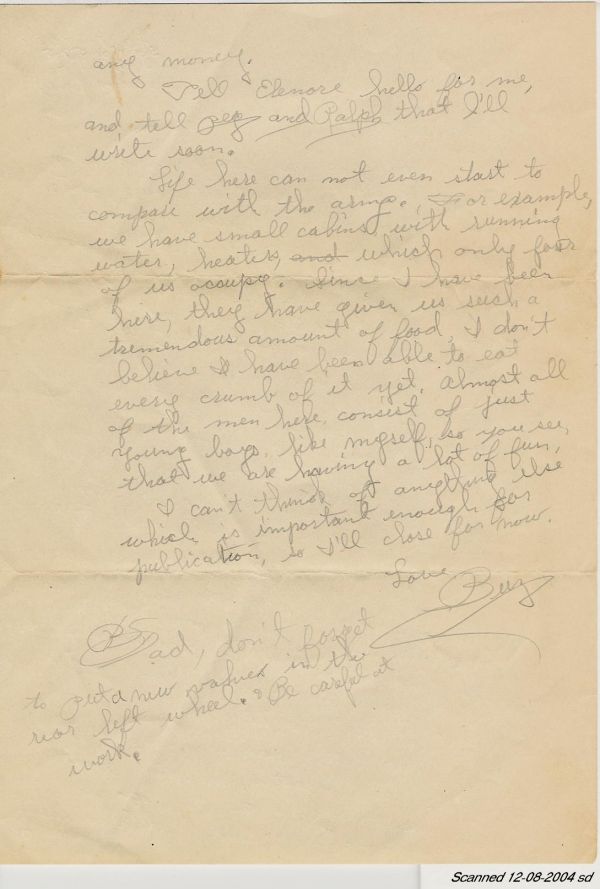 any money.
Tell Elenore hello for me,
and tell peg and Ralph that I'll
write soon.
Life here can not even start to
compare with the army. For example,
we have small cabins, with running
water, heaters, and which only four
of us occupy. Since I have been
here, they have given us such a
tremendous amount of food, I don't
believe I have been able to eat
every crumb of it yet. Almost all
of the men here, consist of just
young boys, like myself, so you see,
that we are having a lot of fun.
I can't think of anything else
which is important enough for
publication, so I'll close for now.
Love
Buz
PS
Dad, don't forget
to put a new valves in the
rear left wheel. & Be careful at
work.
Scanned 12-08-2004 sd